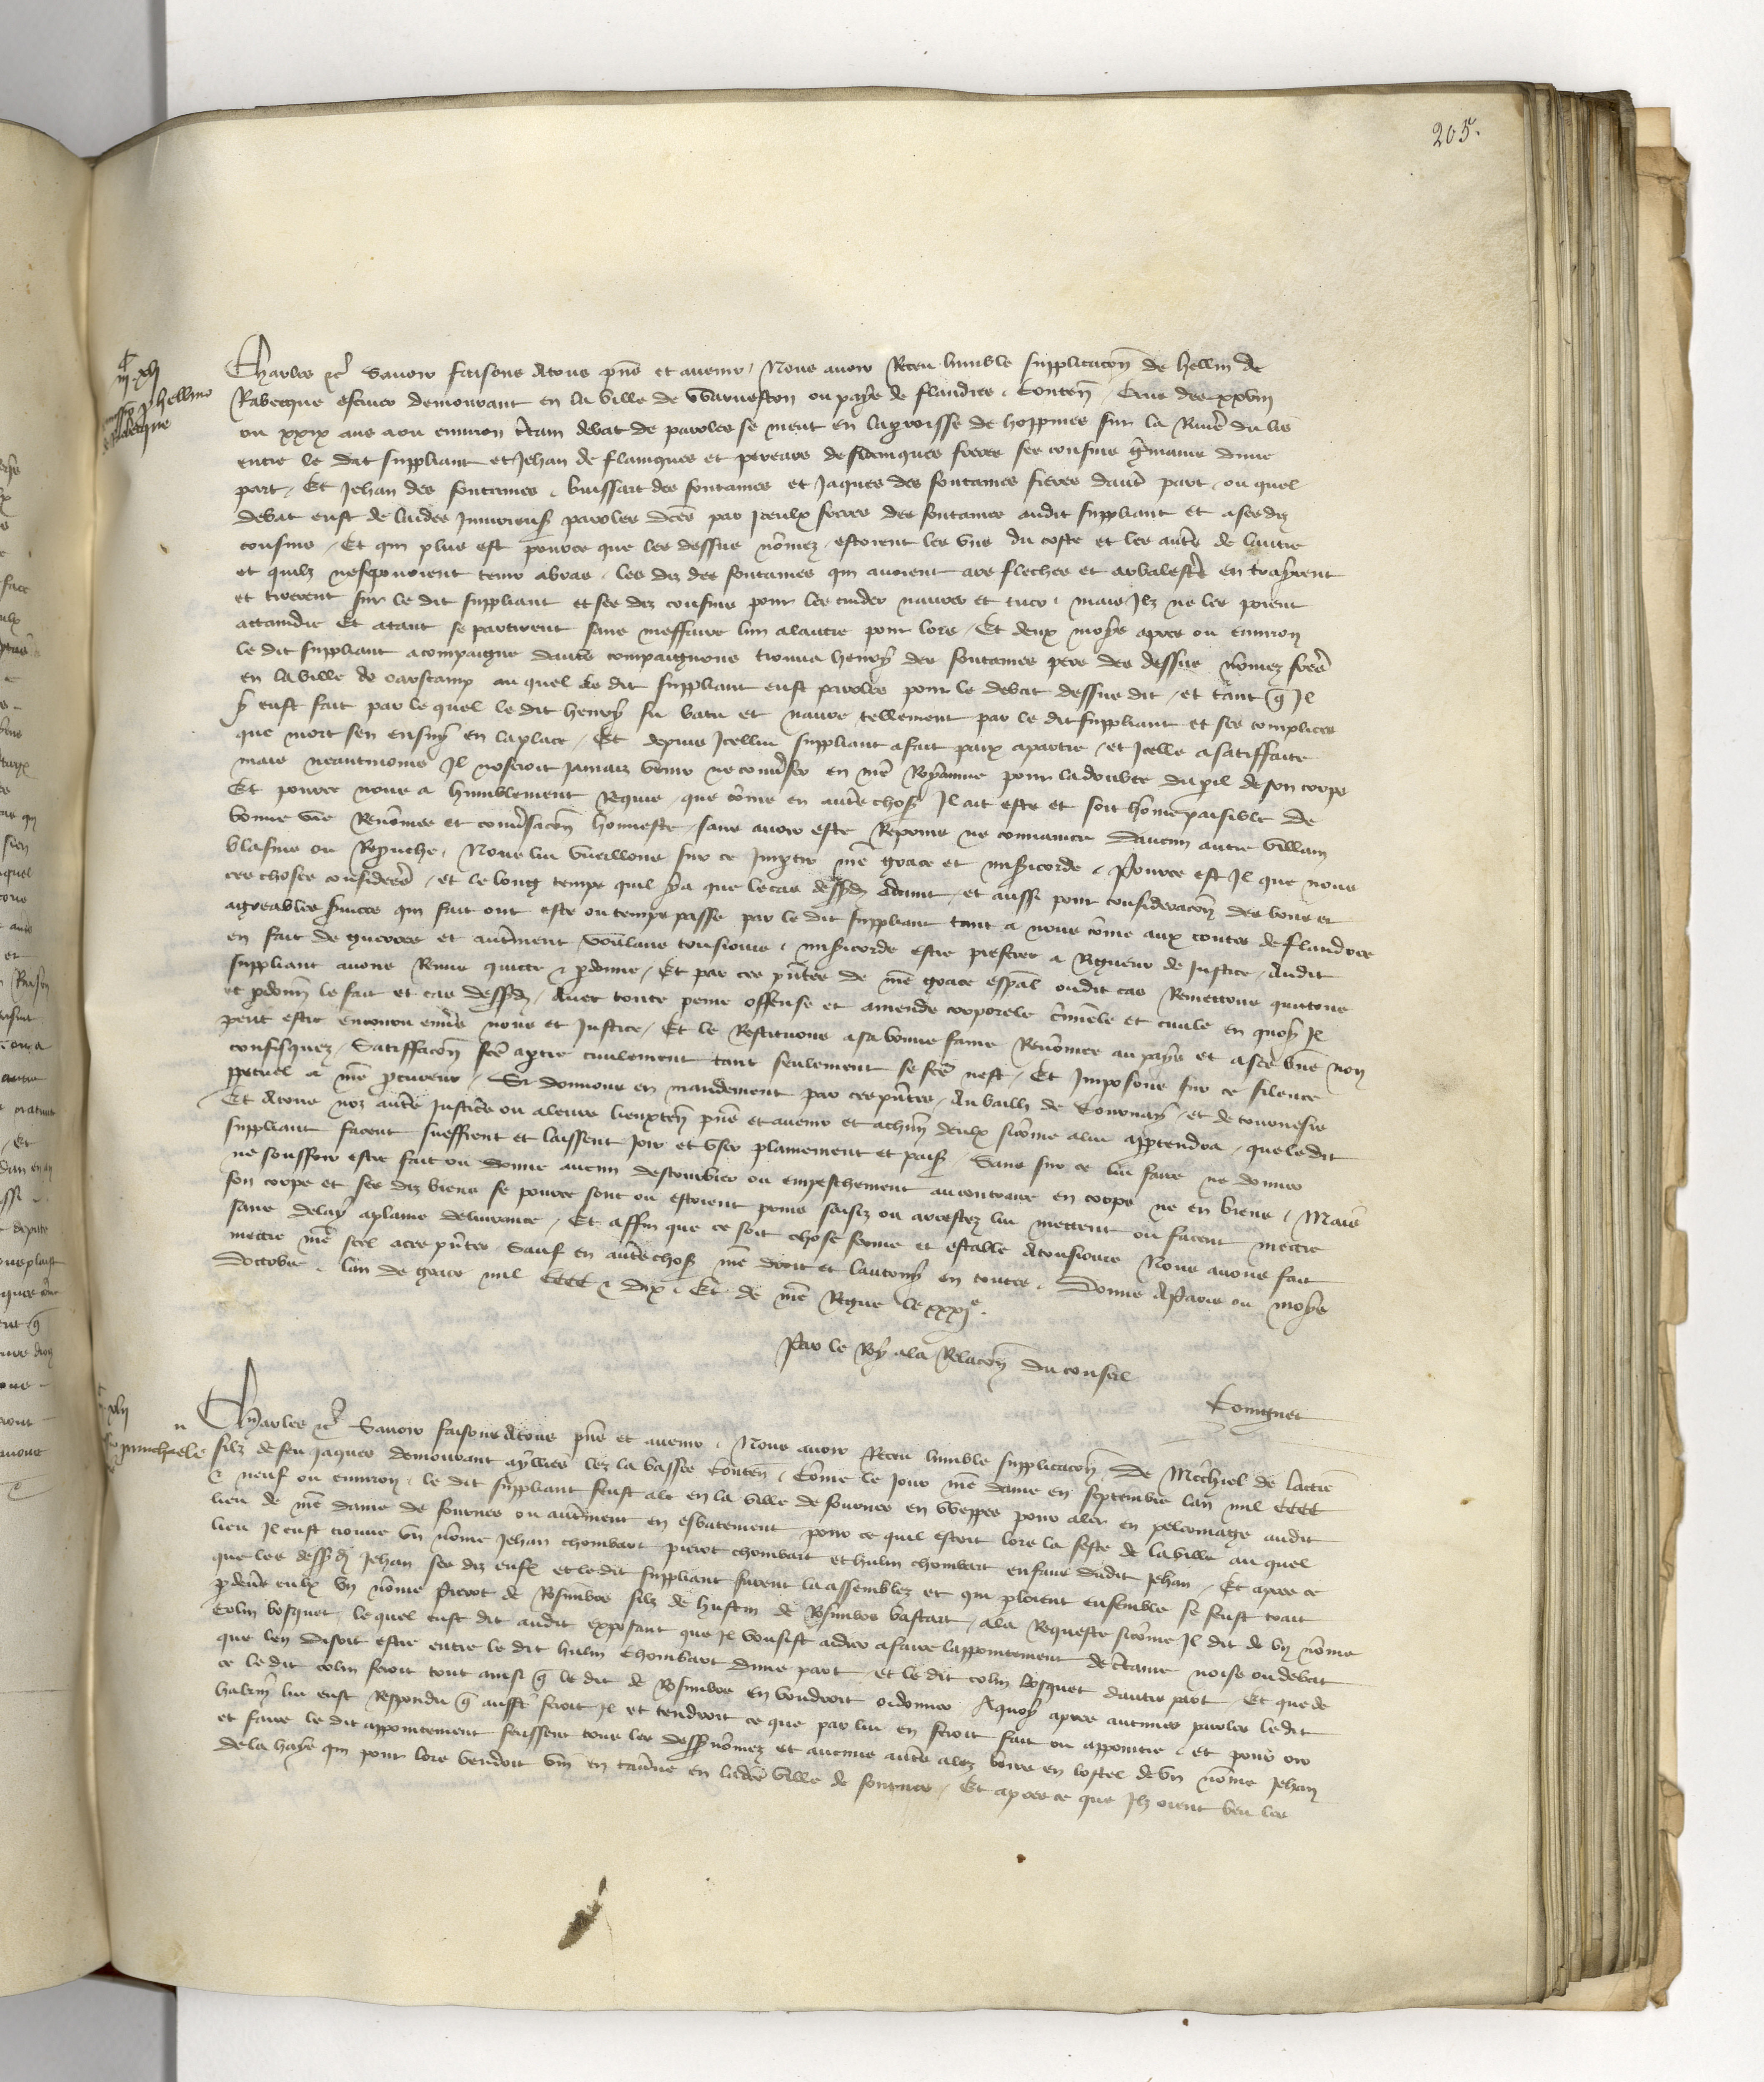 205.
Charles etc̃ Savoir faisons Atous p̃ns et avenir / Nous avoir Receu humble supplicacõn de hellin de
Rabecque escuier demourant en la ville de Warneston ou pays de flandres . Conteñ . Que des xxviij
ou xxix ans a ou environ c̃tain debat de paroles se meut en la parroisse de hoppines sur la Rivie᷑ du lis
entre le dit suppliant et Jehan de flamques et percevas de flamques freres ses cousins g̃mains dune
part / Et Jehan des fontaines . buissart des fontaines et Jaques des fontaines freres daut̃ part . ou quel
debat eust de laides Jniurieus᷑ paroles dc̃es par Jceulx freres des fontaines audit suppliant et a ses diz
cousins / Et qui plus est pource que les dessus nõmez . estoient les vns du coste et les aut̃s de lautre
et quilz ne se povoient tenir abras . les diz des fontaines qui avoient arc fleches et arbalest̃s en trayrent
et tirerent sur le dit suppliant et ses diz cousins pour les cuider navrer et tuer . mais Jlz ne les porent
attaindre Et atant se partirent sans meffaire lun a lautre pour lors / Et deux moys apres ou environ
le dit suppliant acompaigne daut̃s compaignons trouva henry des fontaines pere des dessus nõmez frer̃s
en la ville de varstamp au quel le dit suppliant eust paroles pour le debat dessus dit / et tant q̃ Jl
y eust fait par le quel le dit henry fu batu et navre tellement par le dit suppliant et ses complices
que mort sen ensuy en la place / Et depuis Jcellui suppliant a fait paix a partie / et Jcelle a satiffaite
mais neantmoins Jl noseroit jamaiz venir ne conv̾ser en nr̃e Royaume pour la doubte du p̃il de son corps
Et pource nous a humblement Requis . que cõme en aut̃s chos᷑ Jl ait este et soit hõme paisible de
bonne vie Renõmee et conv̾sacõn honneste . sans avoir este Reprins ne convaincu daucun autre villain
blasme ou Reprouche . Nous lui vueillons sur ce Jmp̃tir nr̃e grace et mis̃icorde . Pource est Jl que nous
ces choses considere᷑s / et le long temps quil ya que le cas dess᷑d̃ Advint . et aussi pour consideracõn des bons et
agreables s̃vices qui fait ont este ou temps passe par le dit suppliant tant a nous cõme aux contes de flandres
en fait de guerres et aut̃ment voulans tousiours . mis̃icorde estre preferee a Rigueur de Justice . Audit
suppliant avons Remis quicte & p̃donne / Et par ces p̃ntes de nr̃e grace esp̃al oudit cas Remettons quittons
et p̃donn̄s le fait et cas dess᷑d̃ . Avec toute peine offense et amende corporele c̃iminele et civile en quoy Jl
peut estre encouru env̾s nous et Justice / Et le Restituons a sa bonne fame Renõmee au pays et a ses bñs non
confisquez / Satiffacõn fc̃e a p̃tie civilement tant seulement se fc̃e nest / Et Jmposons sur ce silence
p̃petuel a nr̃e p̃cureur . Si donnons en mandement par ces p̃ntes . Au bailli de Tournay . et de tournesis
Et Atous noz aut̃s Justicie᷑s ou a leurs lieuxteñ p̃ns et avenir et achũn deulx sicõme a lui app̃tendra . que le dit
suppliant facent sueffrent et laissent Joir et vser plainement et pais᷑ . Sans sur ce lui faire ne donner
ne souffrir estre fait ou donne aucun destourbier ou empeschement au contraire en corps ne en biens . Mais
son corps et ses diz biens se pource sont ou estoient prins saisiz ou arrestez lui mettent ou facent mettre
sans delay a plaine delivrance . Et affin que ce soit chose ferme et estable Atousiours Nous avons fait
mettre nr̃e scel a ces p̃ntes . Sauf en aut̃s chos᷑ nr̃e droit et lautruy en toutes . Donne Aparis ou moys
doctobre . lan de grace mil CCCC & dix . Et de nr̃e Regne le xxxjᵉ .
Par le Roy ala Relacõn du conseil
Charles etc̃ Savoir faisons Atous p̃ns et avenir . Nous avoir Receu humble supplicacõn De Mic̃hiel de lattre
filz de feu Jaques demourant ayllies lez la bassee conteñ . Cõme le jour nr̃e dame en septembre lan mil CCCC
& neuf ou environ . le dit suppliant feust ale en la ville de fournes en weppes pour aler en pelerinage audit
lieu de nr̃e dame de fournes ou aut̃ment en esbatement pour ce quil estoit lors la feste de la ville au quel
lieu Jl eust trouve vn nõme Jehan chombart pierot chombart et hulin chombart enfans dudit Jehan / Et apres ce
que les dess᷑d̃ Jehan ses diz enfs᷑ et le dit suppliant furent la assemblez et qui p̃loient ensemble se feust trait
p̃devẽs eulx vn nõme Pierot de Rosimbos filz de hustin de Rosimbos bastart . ala Requeste sicõme Jl dit de vn nõme
Colin bosquet . le quel eust dit audit exposant que Jl vousist aidier a faire lappointement de c̃taine noise ou debat
que len disoit estre entre le dit hulin Chombart dune part et le dit colin bosquet dautre part Et que de
ce le dit colin feroit tout ainsi q̃ le dit de Rosimbos en vouldroit ordonner Aquoy apres aucunes paroles le dit
lui eust Respondu q̃ aussi feroit Jl et tendroit ce que par lui en seroit fait ou appointie . et pour oir
et faire le dit appointement feussent tous les dess᷑ nõmez et aucuns aut̃s alez boire en lostel de vn nõme Jehan
de la haye qui pour lors vendoit vin en tav̾ne en lad̃te ville de fournes / Et apres ce que Jlz orent beu les